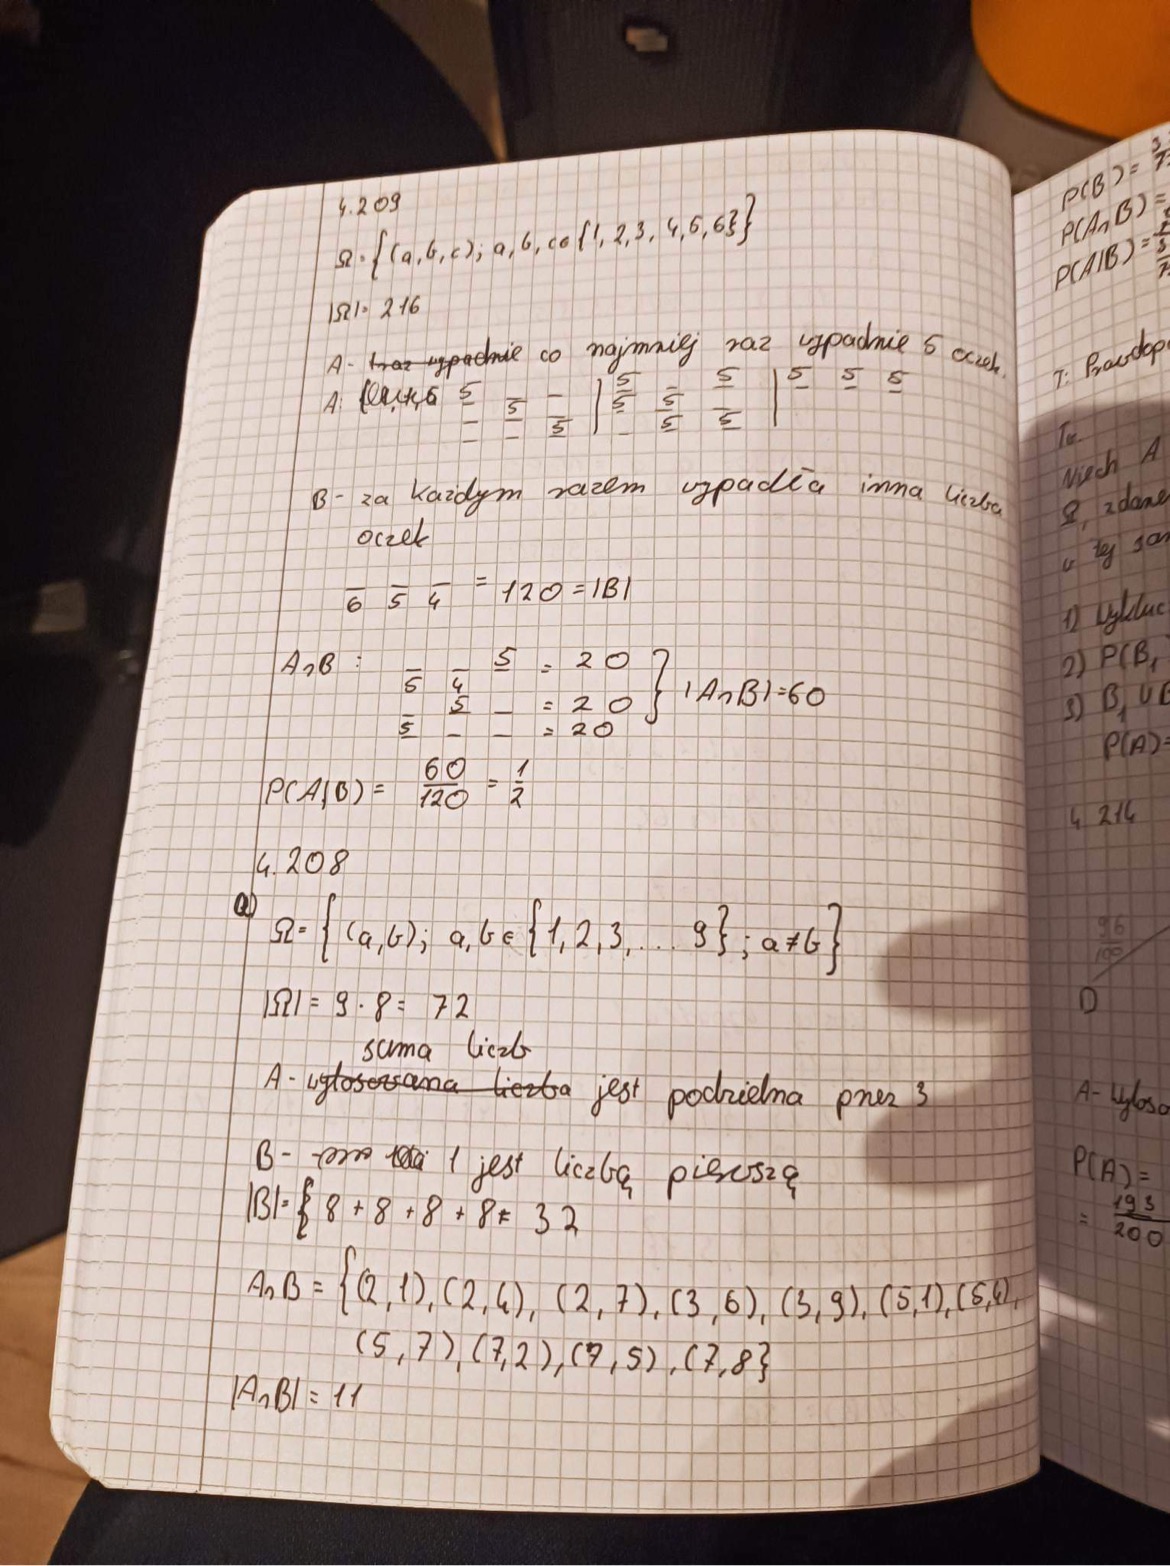 4.209
Ω = {(a,b,c); a,b,c ∈ {1,2,3,4,5,6}}
|Ω| = 216
A - co najmniej raz wypadnie 5 oczek.
A: 5 _ _ | 5 _ 5 | 5 5 5
_ 5 _ | 5 5 _
_ _ 5 | _ 5 5
B - za każdym razem wypadła inna liczba
oczek
6 5 4 = 120 = |B|
A∩B : 5 4 5 = 20
_ 5 _ = 20 } |A∩B| = 60
5 _ _ = 20
P(A|B) = 60/120 = 1/2
4.208
a)
Ω = {(a,b); a,b ∈ {1,2,3,... 9}; a≠b}
|Ω| = 9 · 8 = 72
suma liczb
A - wylosowana liczba jest podzielna przez 3
B - 1 jest liczbą pierwszą
|B| = { 8 + 8 + 8 + 8 = 32
A∩B = {(2,1), (2,4), (2,7), (3,6), (3,9), (5,1), (5,4),
(5,7), (7,2), (7,5), (7,8}
|A∩B| = 11
P(B) = 3
P(A∩B) =
P(A|B) =
T: Prawdop
Tw.
Niech A
Ω, zdane
1) wykluc
2) P(B₁
3) B₁ ∪ B
P(A) =
4.214
96/100
D
A - wyloso
P(A) =
= 193/200